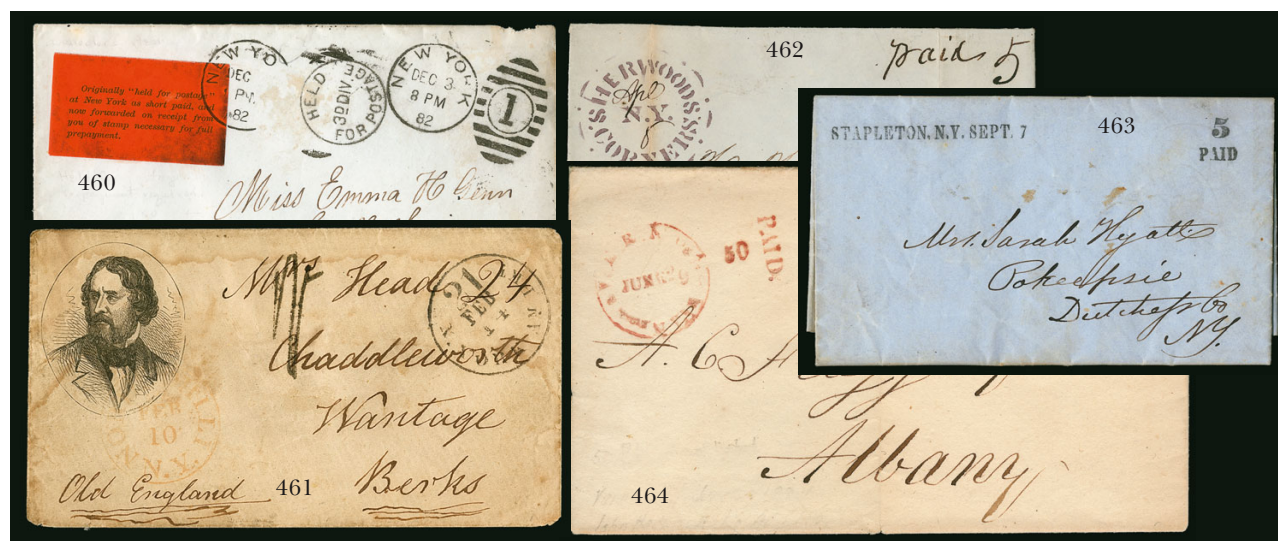 Originally "held for postage"
at New York as short paid, and
now forwarded on receipt from
you of stamp necessary for full
prepayment.
NEW YO
DEC
PM
82
HELD FOR POSTAGE
3D DIV
NEW YORK
DEC 3
8 PM
82
1
460
Miss Emma H Genn
462
SHERWOODS CORNERS
N.Y.
Apl
paid 5
STAPLETON. N.Y. SEPT. 7
463
5
PAID
Mrs. Sarah Hyatt
Pokeepsie
Dutchess Co
NY.
Mrs Head
24
21
FEB
14
Chaddleworth
Wantage
Berks
Old England
FEB
10
N.Y.
461
JUNE 29
50
PAID.
Albany
464